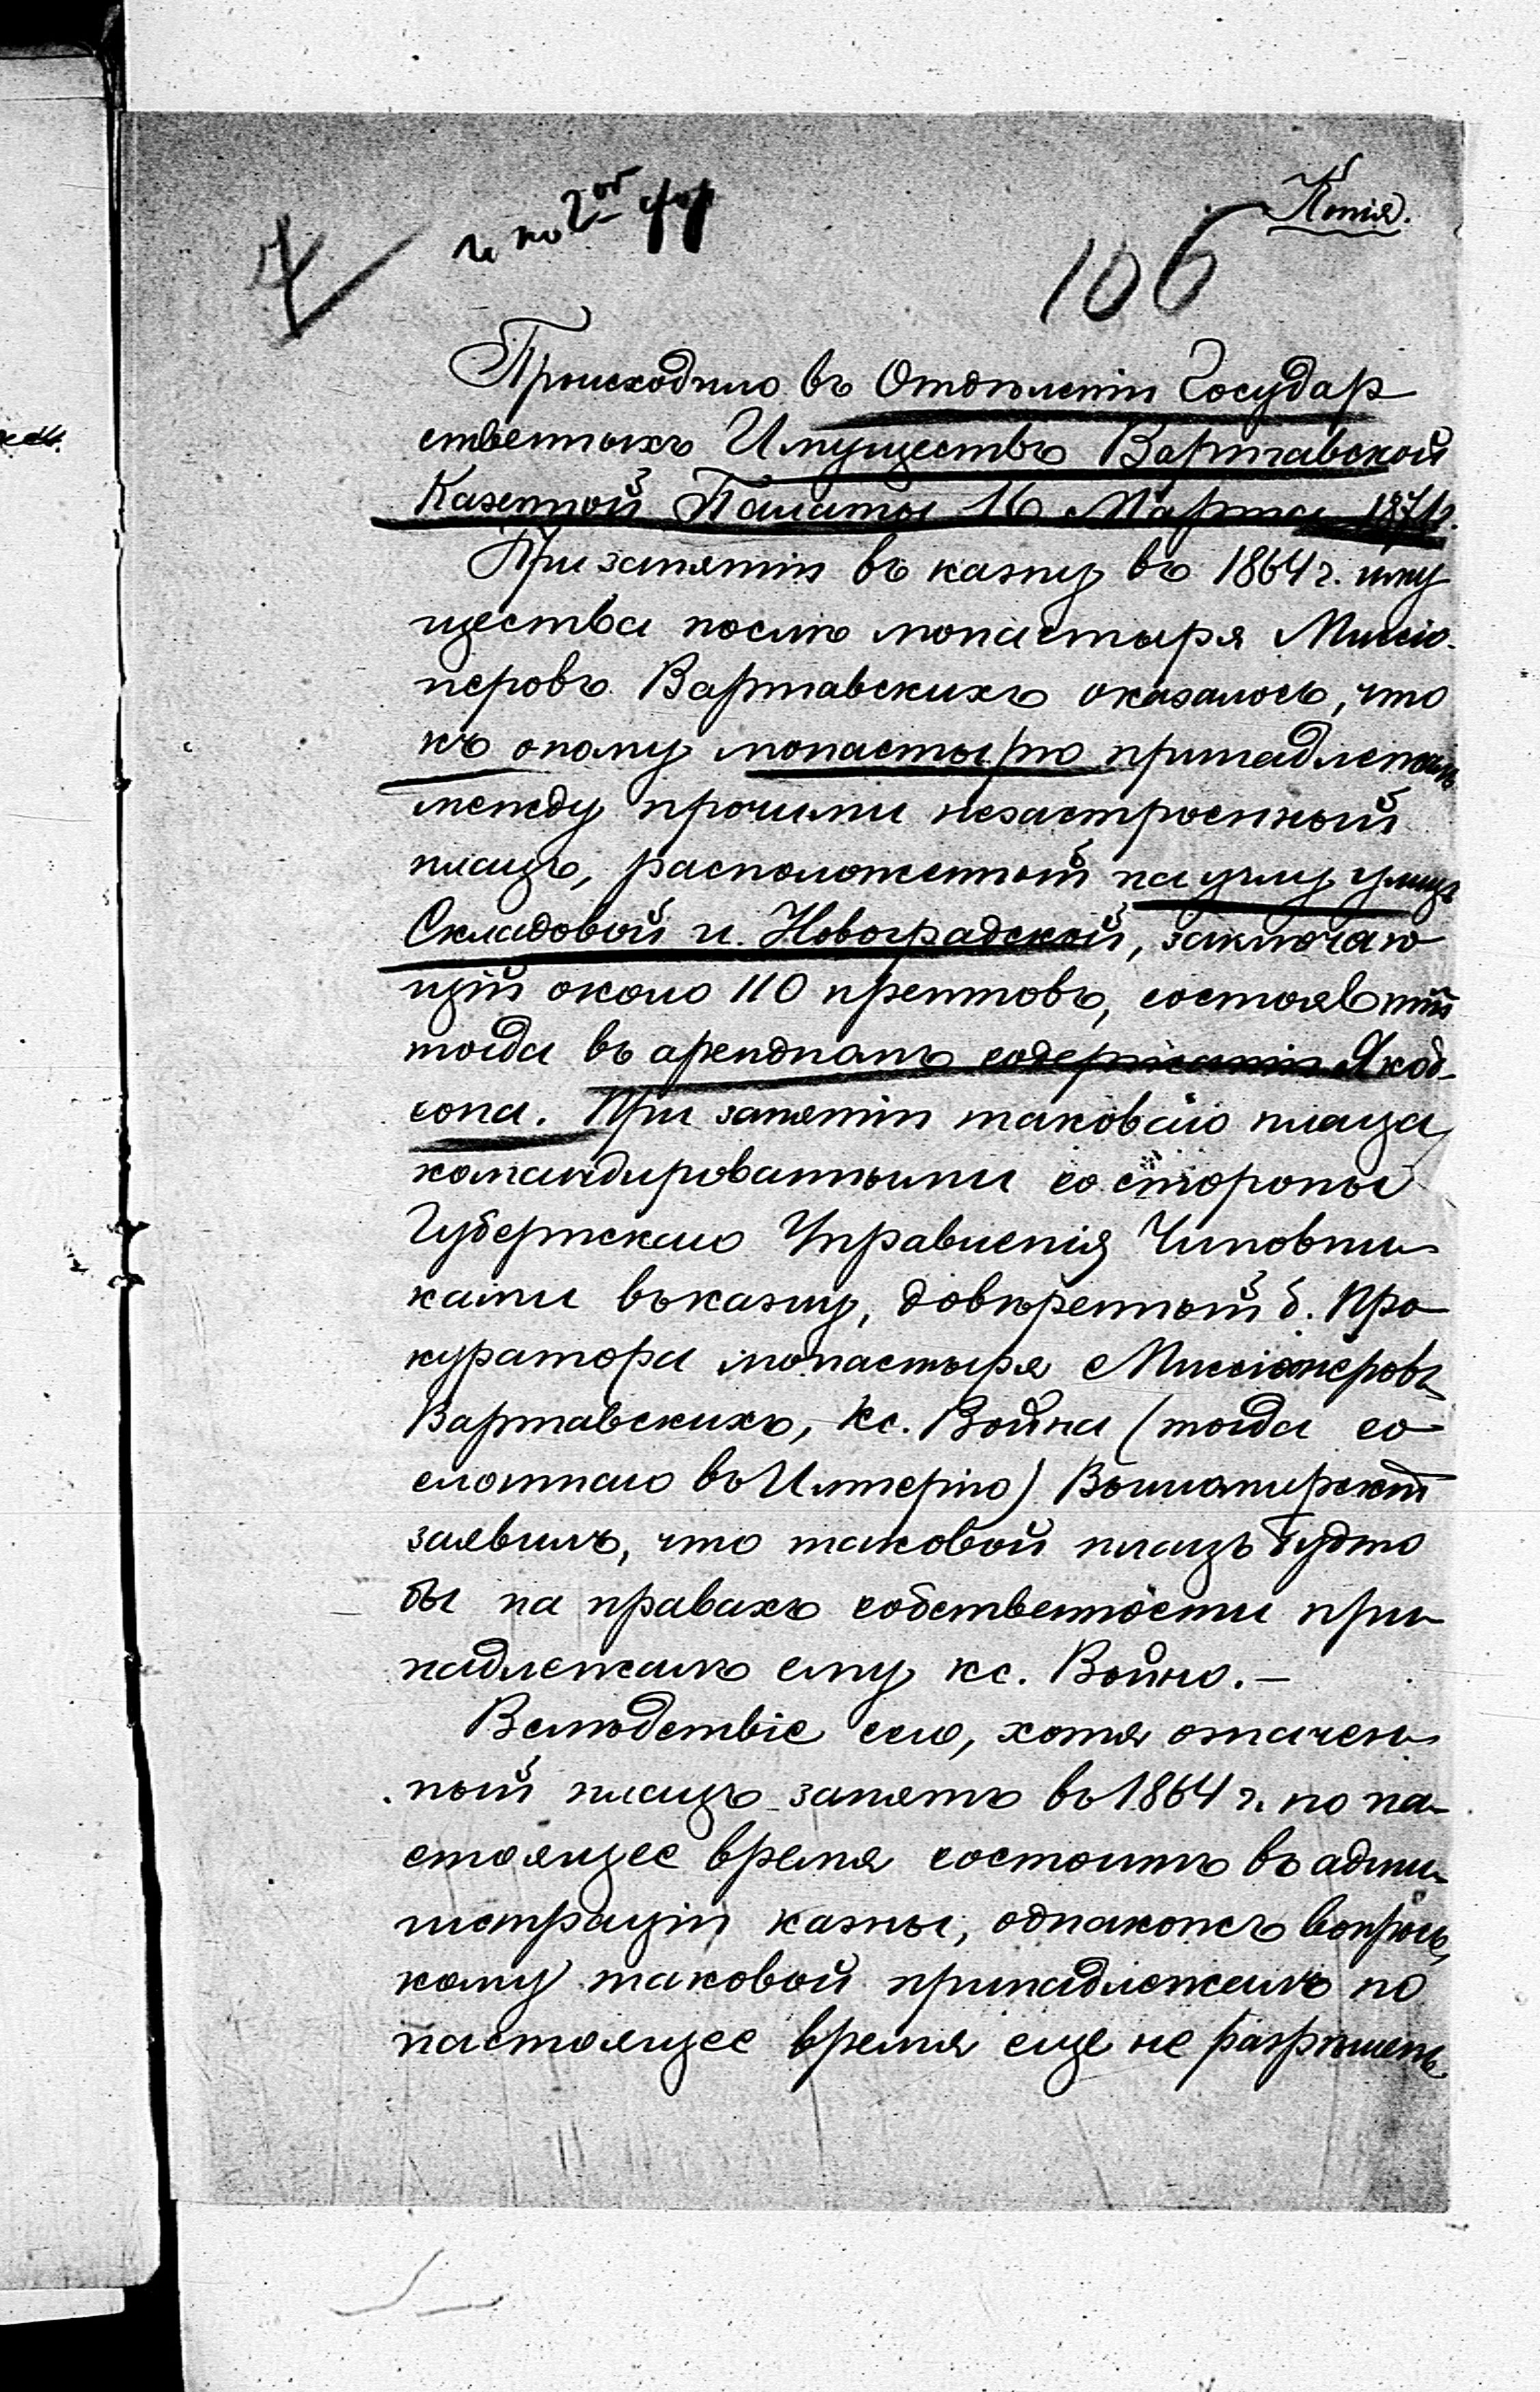 Копія.
106
Происходило въ Отдѣленіи Государ
ственныхъ Имуществъ Варшавской
Казенной Палаты 16 Марта 1871 г.
При занятіи въ казну въ 1864 г. иму
щества послѣ монастыря Миссіо-
неровъ Варшавскихъ оказалось, что
къ оному монастырю принадлежалъ
между прочими незастроенный
плацъ, расположенный на углу улицъ
Складовой и Новоградской, заключаю
щій около 110 прентовъ, состоявшій
тогда въ арендномъ содержаніи Якоб-
сона. При занятіи таковаго плаца
командированными со стороны
Губернскаго Управленія Чиновни-
ками въ казну, довѣренный б. Про-
куратора монастыря Миссіонеровъ
Варшавскихъ, кс. Война (тогда со-
сланнаго въ Имперію)
заявилъ, что таковой плацъ будто
бы на правахъ собственности при-
надлежалъ ему кс. Войно.-
Вслѣдствіе сего, хотя означен-
ный плацъ занятъ въ 1864 г. по на-
стоящее время состоитъ въ адми-
нистраціи казны, однакожъ вопросъ,
кому таковой принадлежалъ по
настоящее время еще не разрѣшенъ